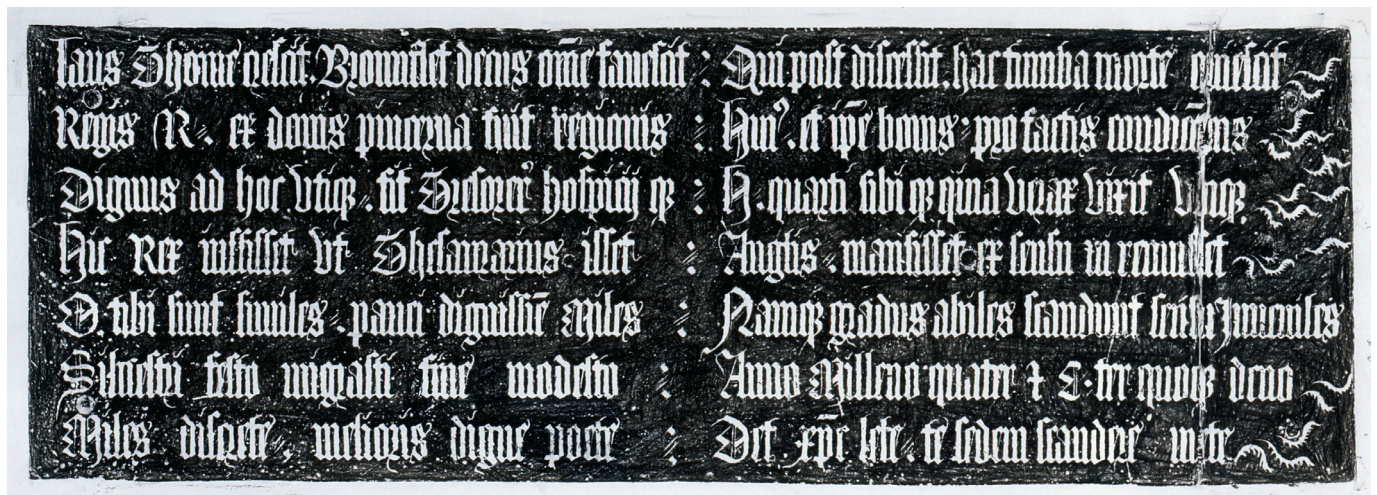 Laus Thome crescit . Bromflet decus om̄e fauescit : Qui post discessit . hac tumba morte quiescit
Regis R . ex donis pincerna fuit regionis : Huiꝰ . et ip̄e bonus . pro factis
Dignus ad hoc vtiqꝫ . fit hospicij qꝫ : H . quarti sibi qꝫ quia verax vixit vbiqꝫ
Hic Rex iussisset vt Thesaurarius isset : Anglis . mansisset ex sensu ni renuisset
O . tibi sunt similes . pauci dignissīē Miles : Namqꝫ gradus abiles scandunt sensu Juueniles
Siluestri festo migrasti fine modesto : Anno Milleno quater ⁊ C . ter quoqꝫ deno
Miles discrete . melioris digne poete : Det xp̄e lete . te sedem scandere mete